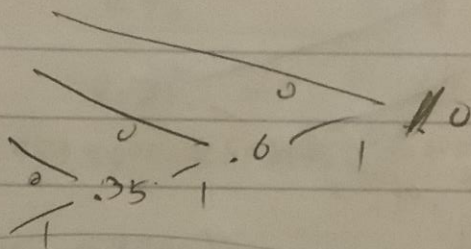 0
0 .6 1 1.0
0 .35 1
1